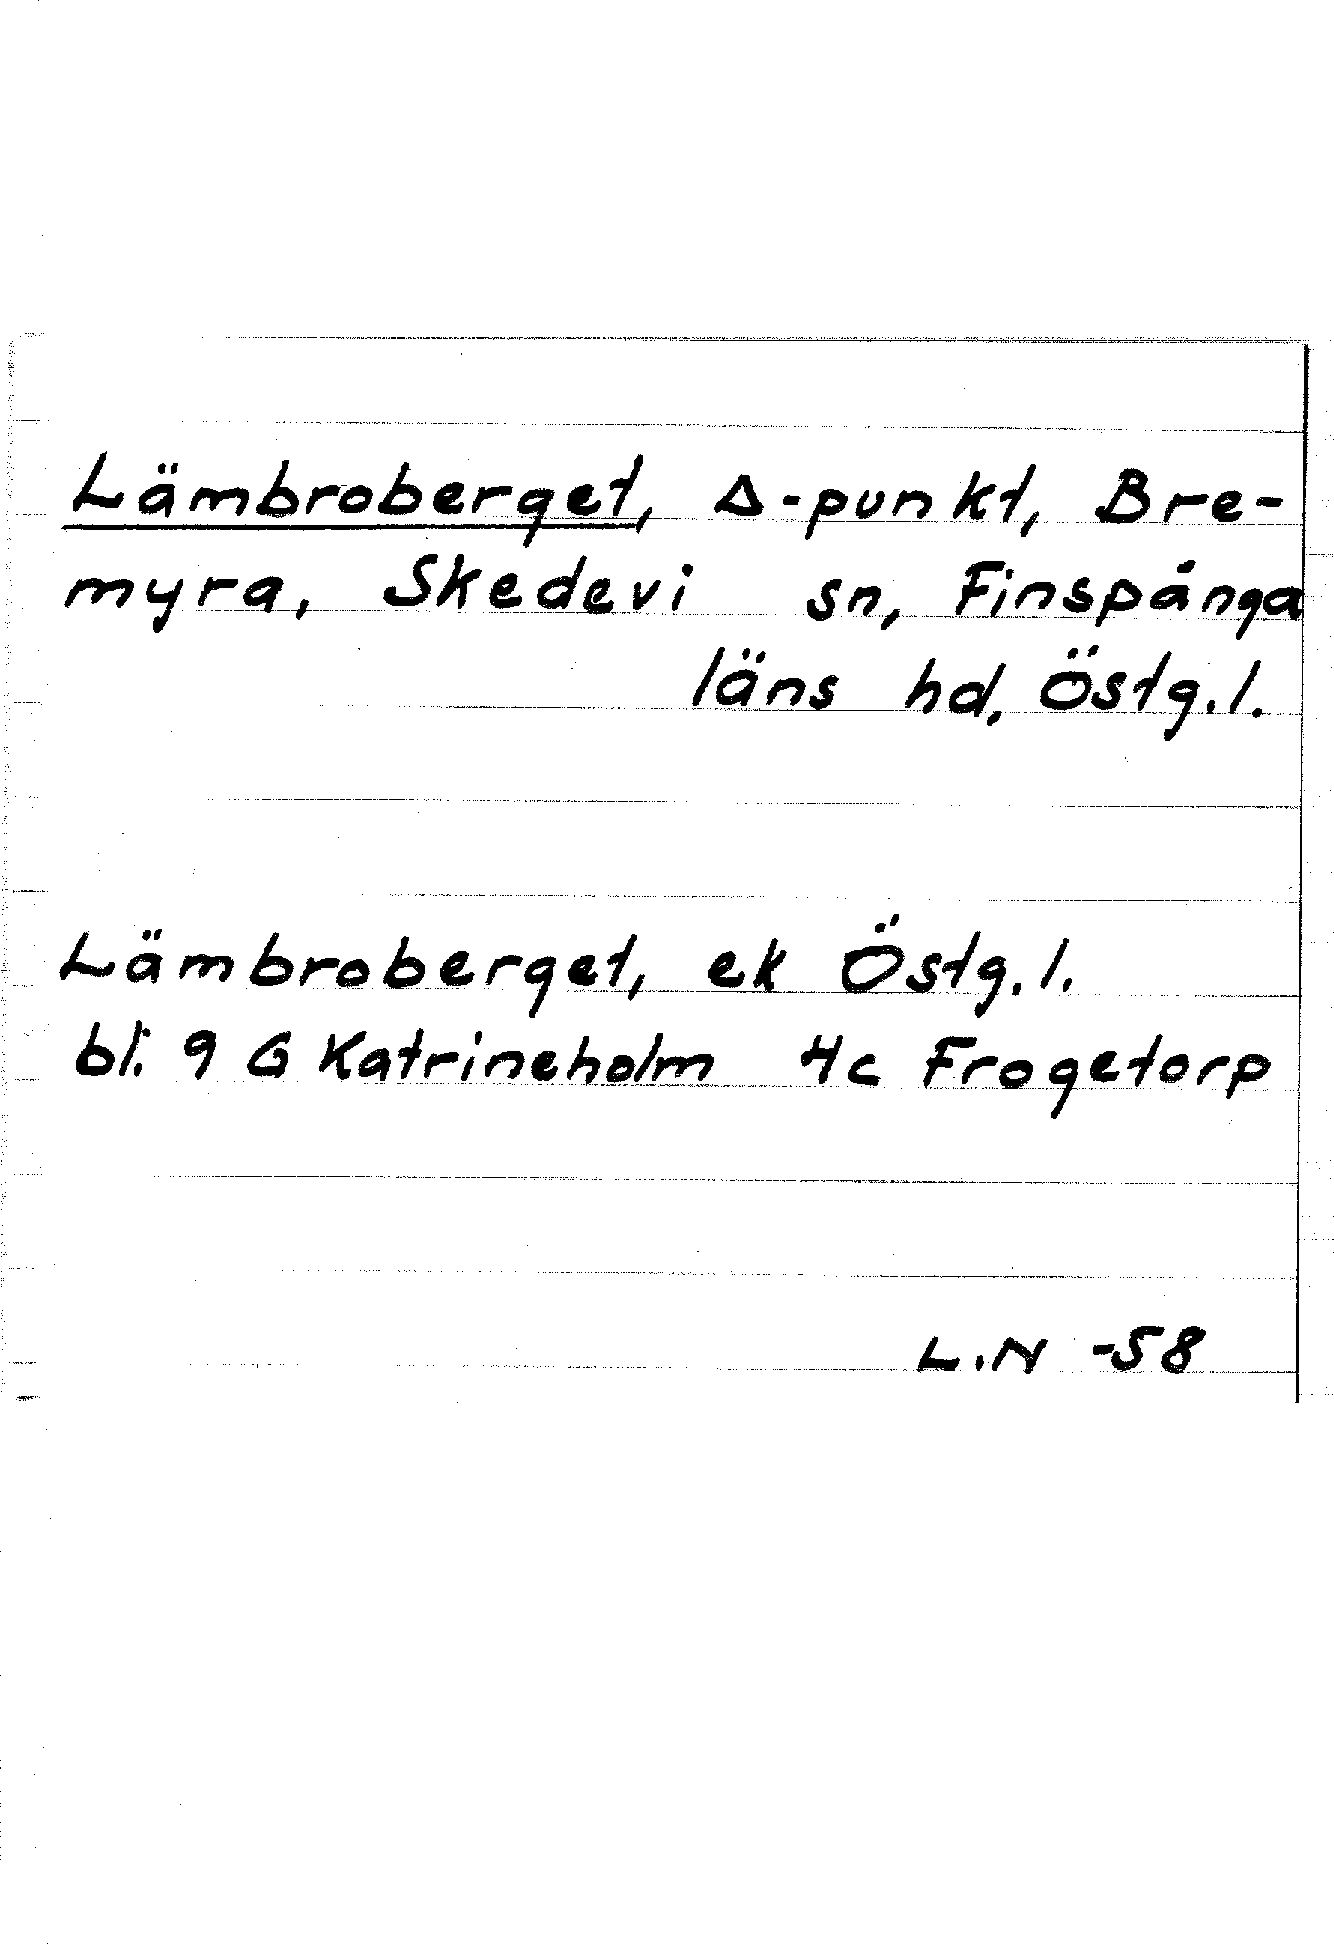 Lämbroberget, Δ-punkt, Bre-
myra, Skedevi sn, Finspånga
läns hd, Östg.l.
Lämbroberget, ek Östg.l.
bl. 9 G Katrineholm 4c Frogetorp
L.N -58